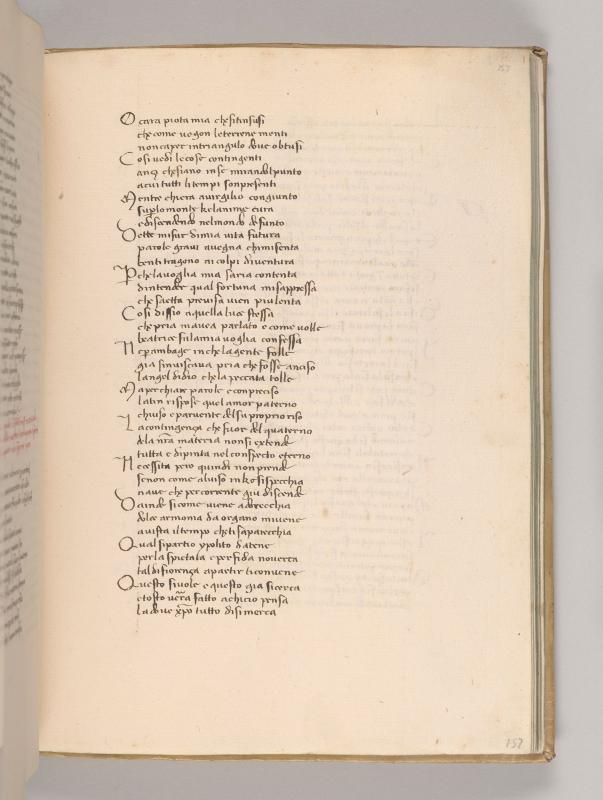 157
O cara piota mia che sitinsusi
che come uegon leterrene menti
non caper intriangulo doue obtusi
Cosi uedi le cose contingenti
anz chesiano inse mirandolpunto
acui tutti litempi sonpresenti
Mentre chiera auirgilio congiunto
suplomonte kelanime cura
e discendendo nelmondo defunto
Dette misur dimia uita futura
parole graui auegna chimisenta
ben titragono ai colpi diuentura
Pche lauoglia mia saria contenta
dintender qual fortuna misappressa
che saetta preuisa uien piulenta
Cosi dissio aquella luce stessa
che pria mauea parlato e come uolle
beatrice fulamia uoglia confessa
Ne p ambage inche lagente folle
gia sinuiscaua pria che fosse anciso
langel didio che la peccata tolle
Ma per chiare parole e conpreciso
latin rispose quel amor paterno
chiuso e paruente del su proprio riso
La contingença che fuor del quaterno
dela nra materia nonsi extende
tutta e dipinta nel conspecto eterno
Necessita pero quindi non prende
senon come aluiso inke sispecchia
naue che per corrente giu discende
Da inde sicome uiene ad orecchia
dolce armonia da organo miuene
auista iltempo che tisaparecchia
Qual sipartio ypolito datene
per la spietata e perfida nouerca
tal di fiorença apartir ticonuene
Questo siuole e questo gia sicerca
e tosto uerra fatto achicio pensa
la doue xpo tutto di simerca
157